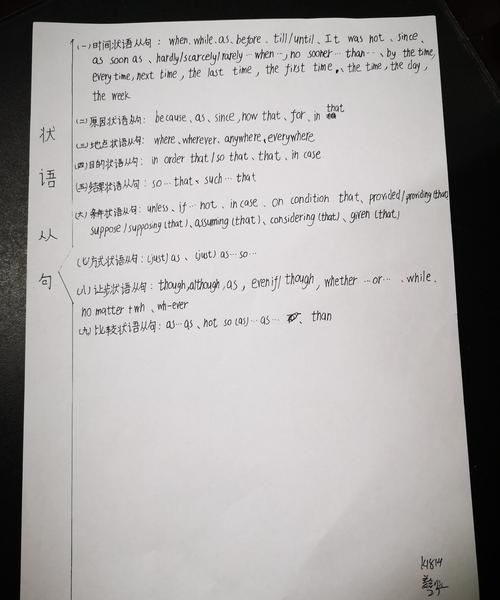 状语从句
(一)时间状语从句: when. while. as. before. till/until、It was not、since、
as soon as、hardly/scarcely/rarely…when…, no sooner…than…、by the time,
every time, next time, the last time, the first time、the time, the day,
the week
(二)原因状语从句: because、as、since, now that、for、in that
(三)地点状语从句: where、wherever、anywhere、everywhere
(四)目的状语从句: in order that/so that、that、in case
(五)结果状语从句: so…that、such…that
(六)条件状语从句: unless、if…not、in case、on condition that、provided/providing(that)
suppose/supposing(that)、assuming(that)、considering(that)、given(that)
(七)方式状语从句: (just)as、(just)as…so…
(八)让步状语从句: though, although, as, even if/though, whether…or…、while.
no matter+wh、wh-ever
(九)比较状语从句: as…as、not so(as)…as…、than
K1814